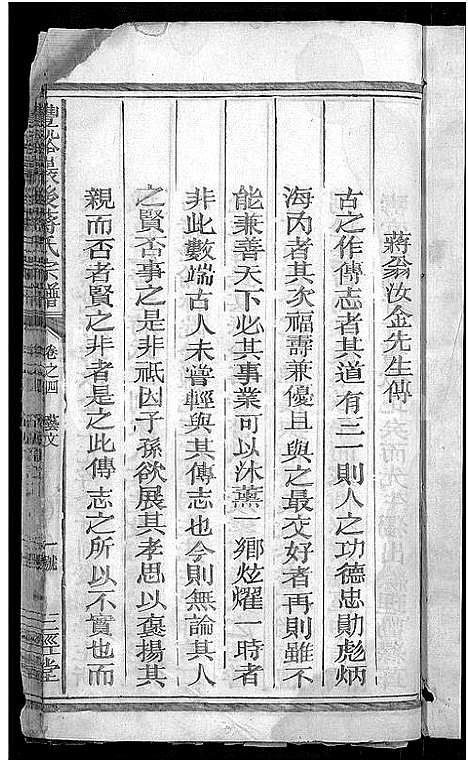 蔣翁汝金先生傳
古之作傳志者其道有三一則人之功德忠勛彪炳
海內者其次福壽兼優且與之最交好者再則雖不
能兼善天下必其事業可以沐薰一鄉炫耀一時者
非此數端古人未嘗輕與其傳志也今則無論其人
之賢否事之是非祇因子孫欲展其孝思以褒揚其
親而否者賢之非者是之此傳志之所以不實也而
後蔣氏宗譜 卷之四 藝文 一號 三徑堂